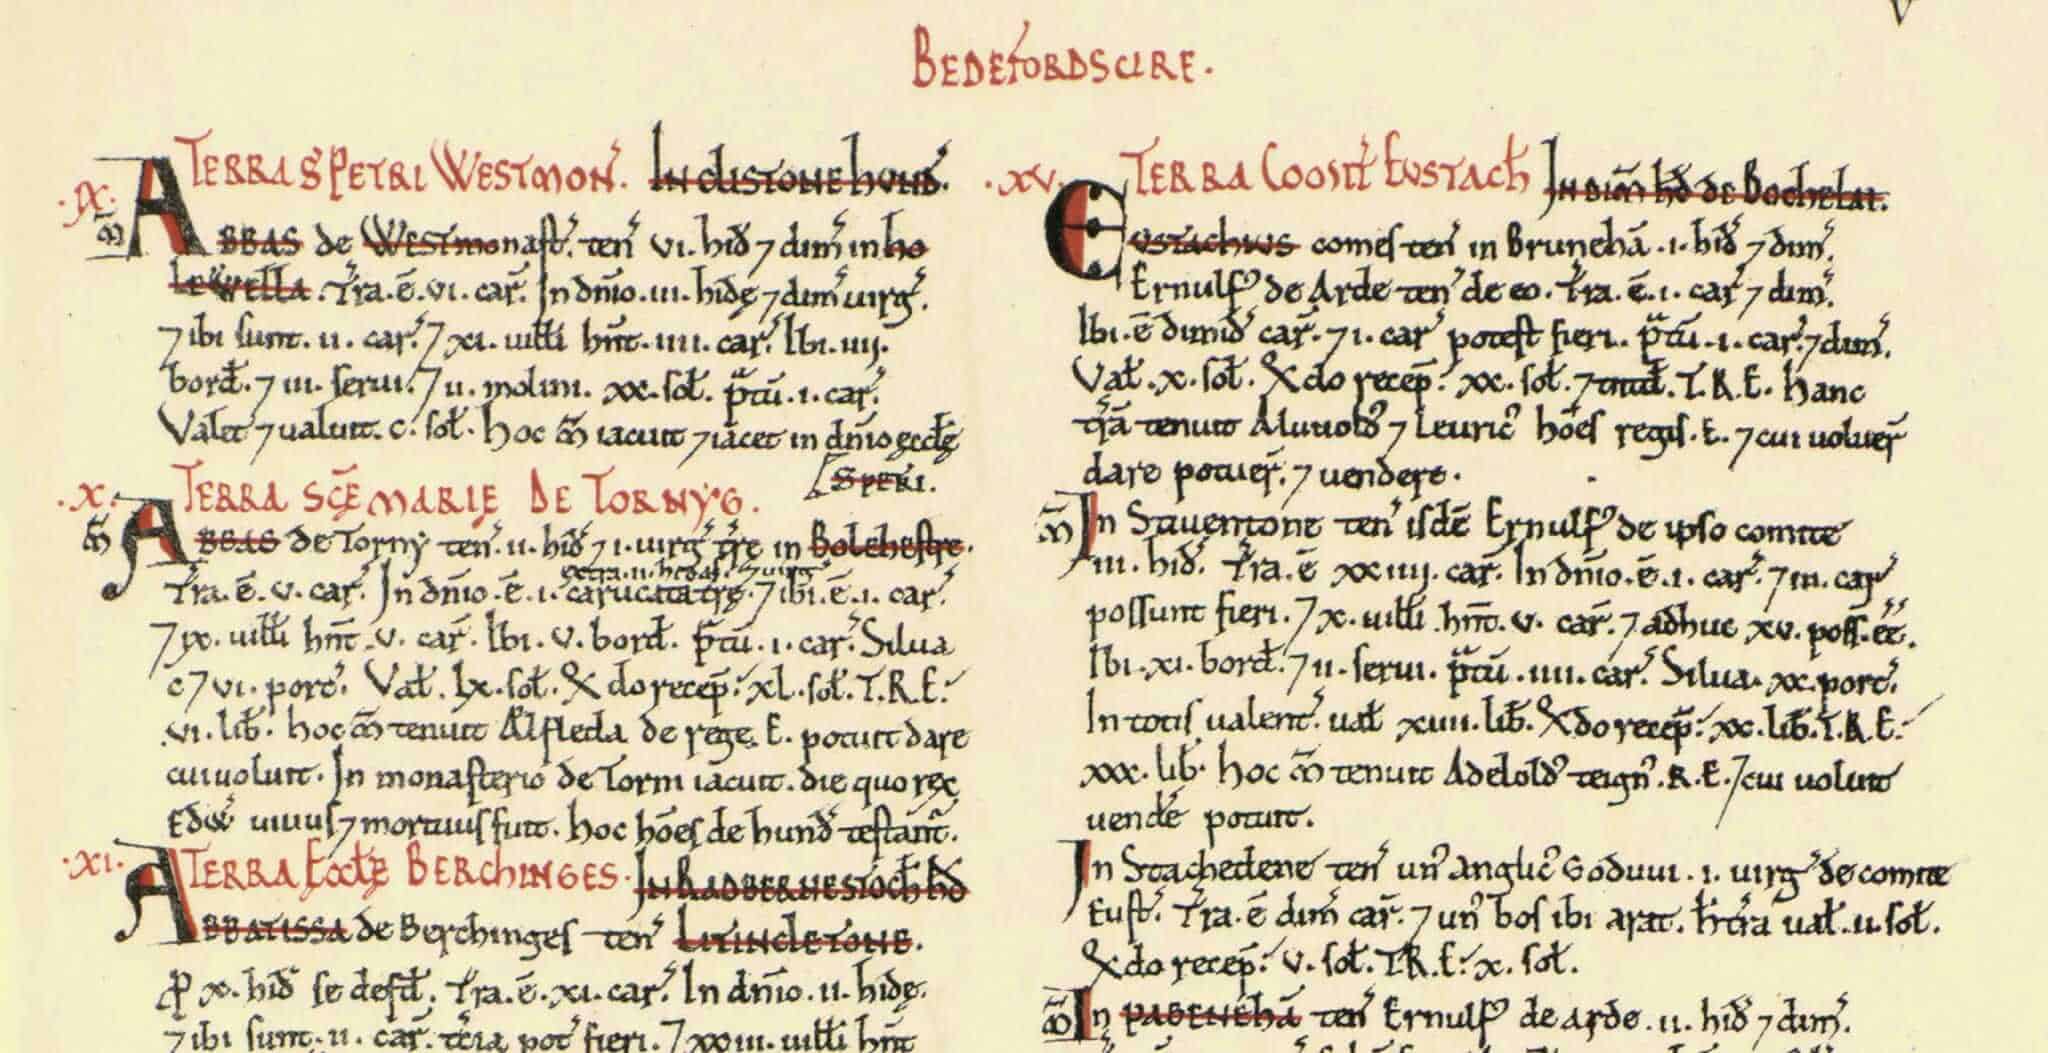 BEDEFORDSCIRE.
.IX. TERRA S̄ PETRI WESTMON̄. IN CLISTONE HUND̄.
M̄ ABBAS de Westmonast̄. ten̄ vi. hid̄ ⁊ dim̄ in ho
lewella. T̄ra. ē. vi. car̄. In dn̄io. iii. hidę ⁊ dim̄ uirḡ.
⁊ ibi sunt. ii. car̄. ⁊ xi. uilłi hn̄t. iiii. car̄. Ibi. iiij.
borđ. ⁊ iii. serui. ⁊ ii. molini. xx. soł. p̄tū. i. car̄.
Valet ⁊ ualuit. c. soł. hoc m̄ iacuit ⁊ iacet in dn̄io ęccłę
[S PETRI.
.X. TERRA SC̄E MARIE DE TORNYG.
M̄ ABBAS de Torny ten̄. ii. hid̄ ⁊ i. uirḡ t̄re in Bolehestre.
extra. ii. hidas. ⁊ uirḡ
T̄ra. ē. v. car̄. In dn̄io. ē. i. carucata t̄re. ⁊ ibi. ē. i. car̄.
⁊ ix. uilłi hn̄t. v. car̄. Ibi. v. borđ. p̄tū. i. car̄. Silua
c ⁊ vi. porc̄. Vał. lx. soł. ⁊ do recep̄: xl. soł. T.R.E:
vi. lib̄. hoc m̄ tenuit Alfleda de rege. E. potuit dare
cui uoluit. In monasterio de Torni iacuit. die quo rex
Edw̄ uiuus ⁊ mortuus fuit. hoc hōes de hund̄ testant̄.
.XI. TERRA ECCŁE BERCHINGES. IN RADBERNESTOCH HD̄
ABBATISSA de Berchinges ten̄ LITINCLETONE.
ꝓ x. hid̄ se defđ. T̄ra. ē. xi. car̄. In dn̄io. ii. hidę.
⁊ ibi sunt. ii. car̄. t̄cia pot̄ fieri. ⁊ xxiii. uilłi hn̄t
V
.XV. TERRA COMIT̄ EUSTACHII IN DIM̄ HD̄ DE BOCHELAI.
EUSTACHIUS comes ten̄ in Brunehā. i. hid̄ ⁊ dim̄.
Ernulf⁹ de Arde ten̄ de eo. T̄ra. ē. i. car̄ ⁊ dim̄.
Ibi. ē dimid̄ car̄. ⁊ i. car̄ potest fieri. p̄tū. i. car̄. ⁊ dim̄.
Vał. x. soł. ⁊ do recep̄: xx. soł. ⁊ tnd̄. T.R.E. hanc
t̄rā tenuit Aluuold⁹ ⁊ Leuric⁹ hōes regis. E. ⁊ cui uoluer̄
dare potuer̄. ⁊ uendere.
M̄ In Stiuentone ten̄ isdē Ernulf⁹ de ipso comite
iii. hid̄. T̄ra. ē xxiiii. car̄. In dn̄io. ē. i. car̄. ⁊ iii. car̄
possunt fieri. ⁊ x. uilłi hn̄t. v. car̄. ⁊ adhuc xv. poss̄. ēē.
Ibi. xi. borđ. ⁊ ii. serui. p̄tū. iiii. car̄. Silua. xx. porc̄.
In totis ualent̄. uał xiiii. lib̄. ⁊ do recep̄: xx. lib̄. T.R.E:
xxx. lib̄. hoc m̄ tenuit Adelold⁹ teign̄. R.E. ⁊ cui uoluit
uend̄e potuit.
In Stachedene ten̄ un⁹ anglic⁹ Goduui. i. uirḡ de comite
Eust̄. T̄ra. ē dim̄ car̄. ⁊ un⁹ bos ibi arat. h̄ t̄ra uał. ii. soł.
⁊ do recep̄: v. soł. T.R.E: x. soł.
M̄ In PABENEHĀ ten̄ Ernulf⁹ de arde. ii. hid̄ ⁊ dim̄.